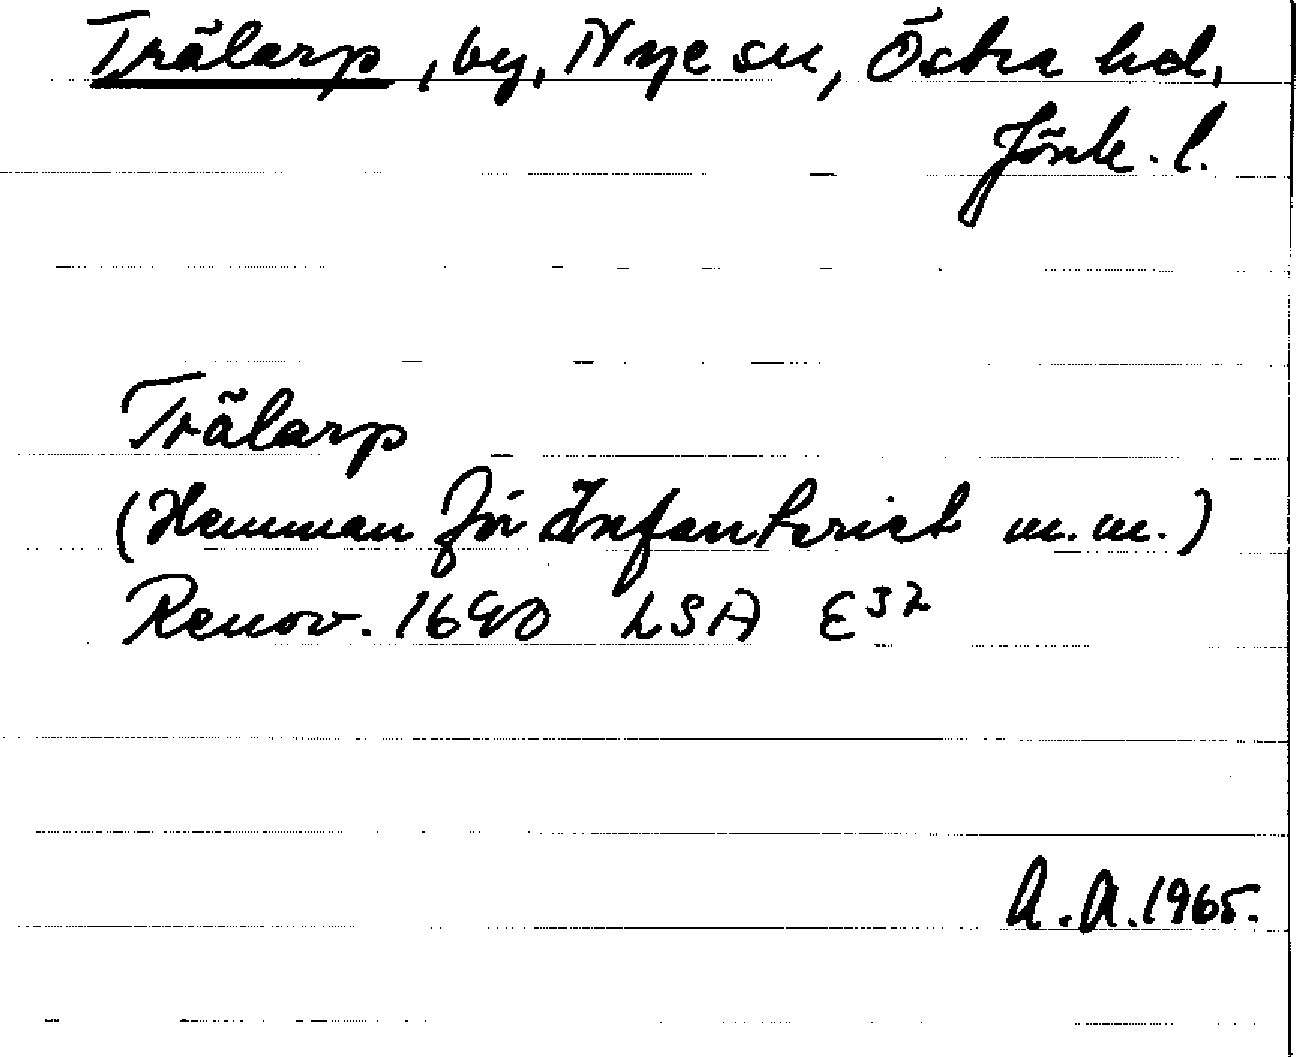 Trälarp, by, Nye sn, Östra hd,
Jönk. l.
Trälarp
(Hemman för Infanteriet m.m.)
Renov. 1690 LSA E³²
A.A. 1965.